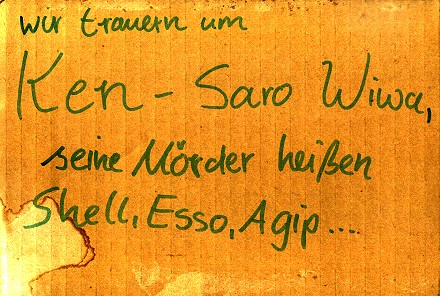 wir trauern um
Ken-Saro Wiwa,
seine Mörder heißen
Shell, Esso, Agip....